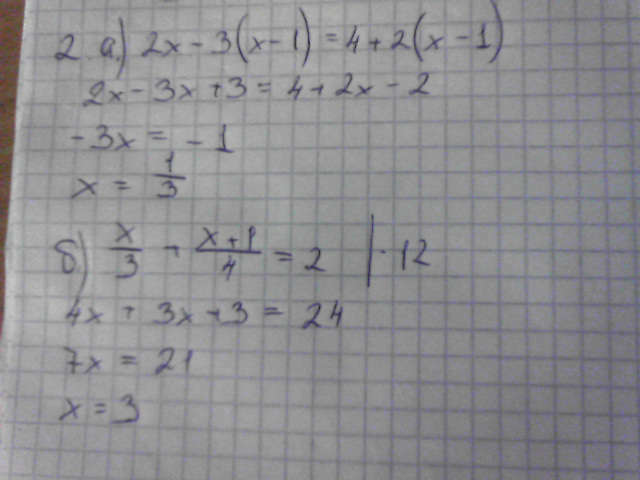 2. а.) 2x - 3(x - 1) = 4 + 2(x - 1)
2x - 3x + 3 = 4 + 2x - 2
-3x = -1
x = 1/3
б) x/3 + (x + 1)/4 = 2 | · 12
4x + 3x + 3 = 24
7x = 21
x = 3